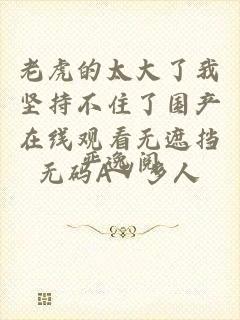 老虎的太大了我
坚持不住了国产
在线观看无遮挡
无码AV多人
严逸阅